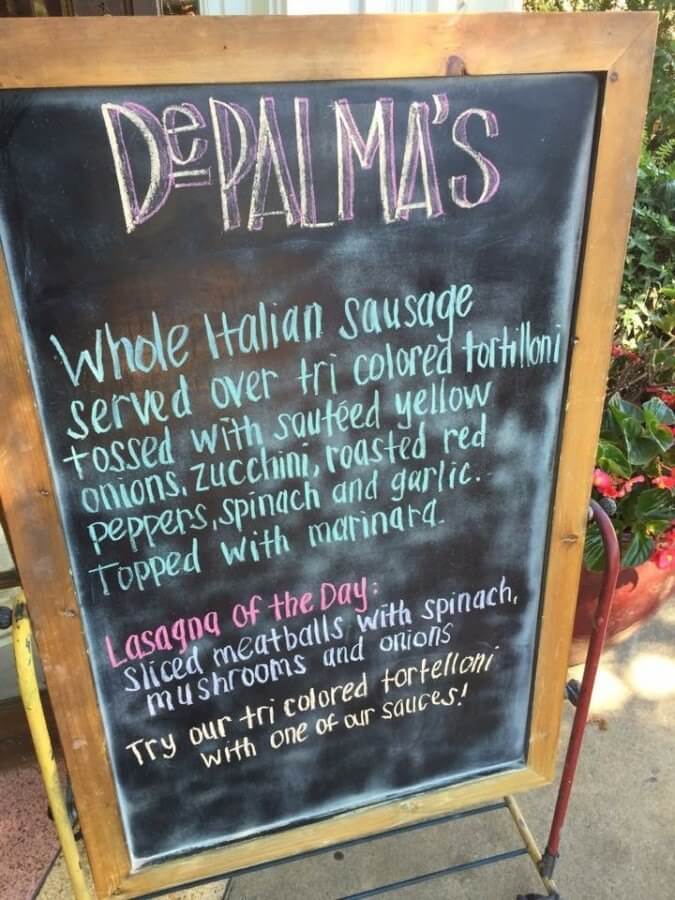 DePALMA'S
Whole Italian Sausage
served over tri colored tortilloni
tossed with sautéed yellow
onions, zucchini, roasted red
peppers, spinach and garlic.
Topped with marinara.
Lasagna of the Day:
sliced meatballs with spinach,
mushrooms and onions
Try our tri colored tortelloni
with one of our sauces!